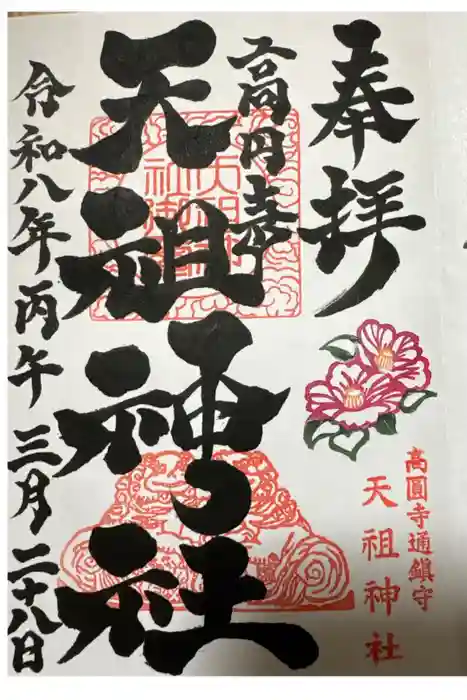 奉拝
高円寺
天祖神社
令和八年丙午三月二十八日
高圓寺通鎮守
天祖神社